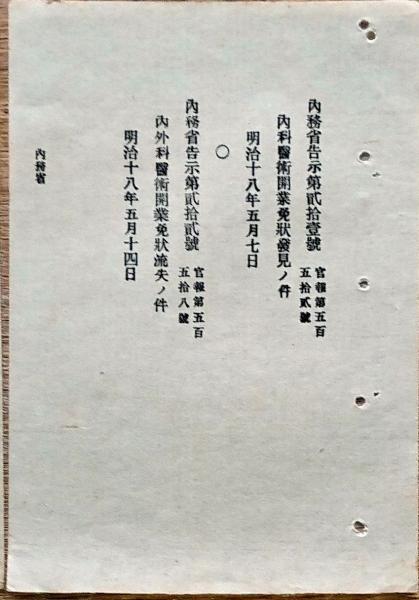 內務省吿示第貳拾壹號
官報第五百
五拾貳號
內科醫術開業免狀發見ノ件
明治十八年五月七日
〇
內務省吿示第貳拾貳號
官報第五百
五拾八號
內外科醫術開業免狀流失ノ件
明治十八年五月十四日
內務省